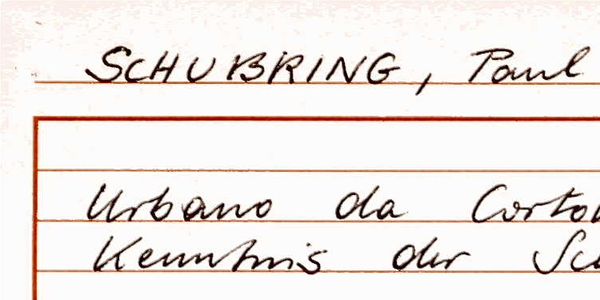 SCHUBRING, Paul
Urbano da Corto
Kenntnis der Sc